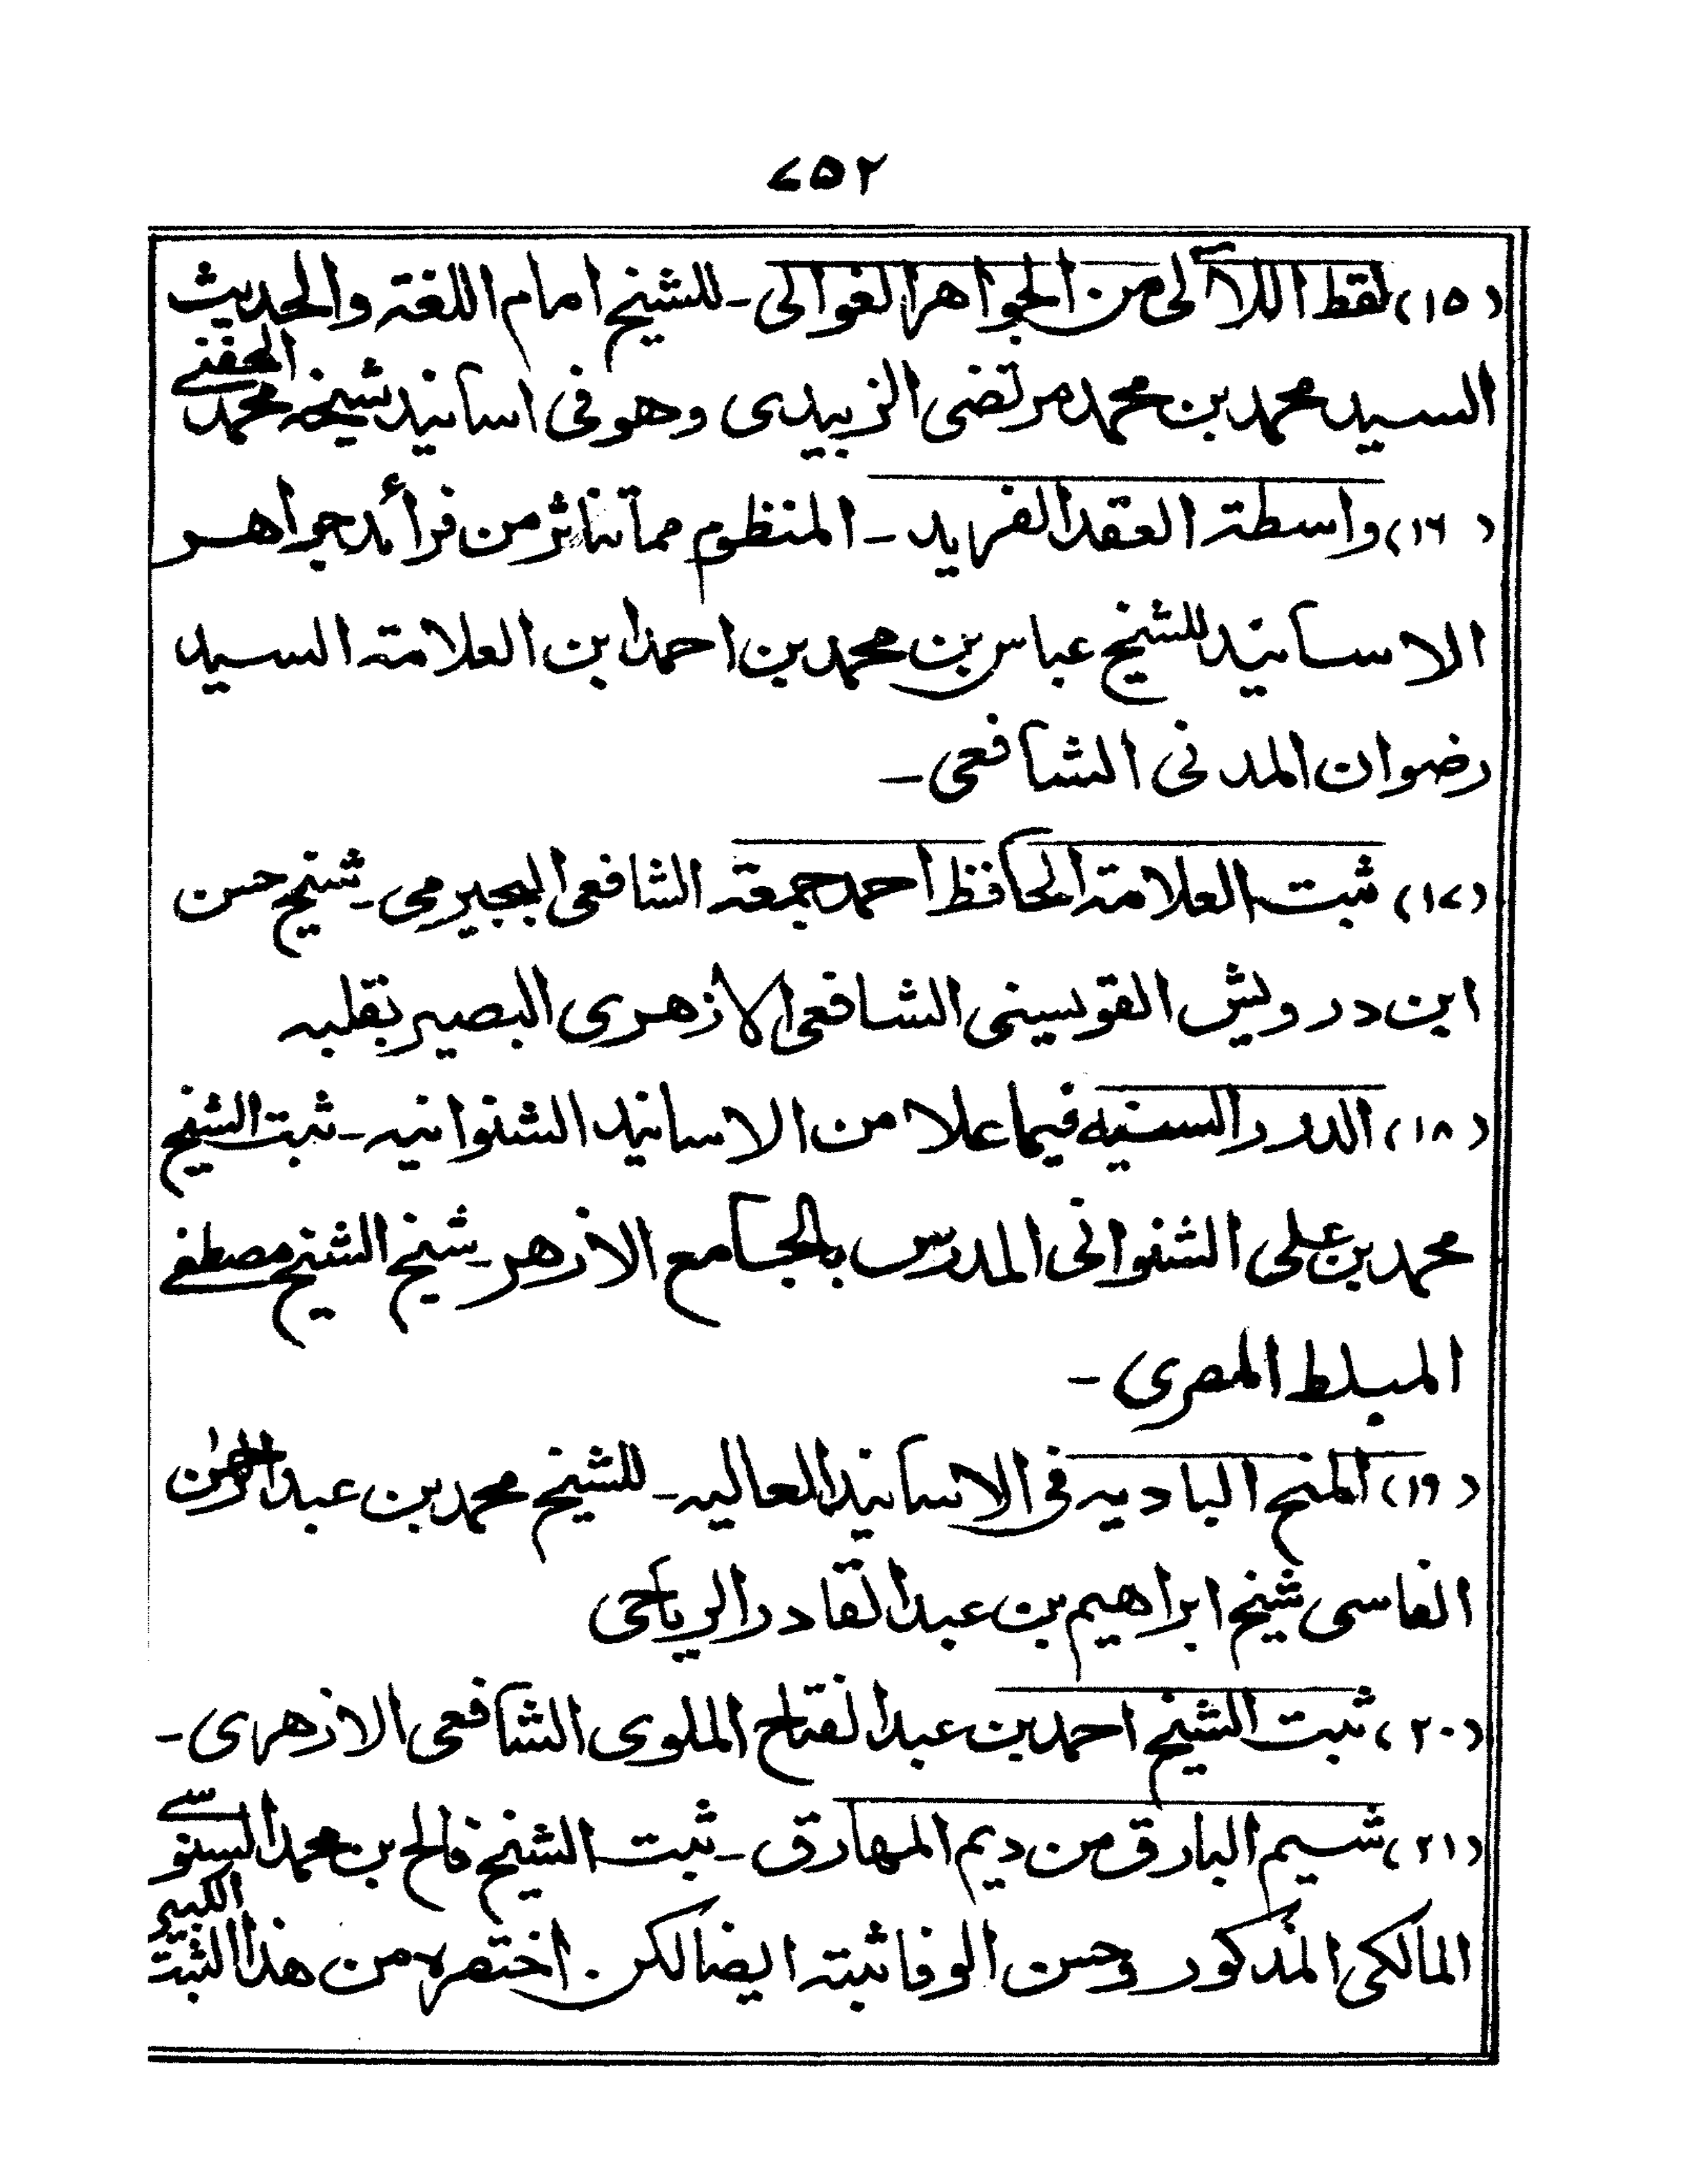 ٧٥٢
(١٥) لقط اللآلى من الجواهر الغوالى - للشيخ امام اللغة والحديث
السيد محمد بن محمد مرتضى الزبيدى وهو فى اسانيد شيخه محمد الحفنى
(١٦) واسطة العقد الفريد - المنظوم مما تناثر من فرائد جواهر
الاسانيد للشيخ عباس بن محمد بن احمد ابن العلامة السيد
رضوان المدنى الشافعى -
(١٧) ثبت العلامة الحافظ احمد جمعه الشافعى البجيرمى - شيخ حسن
ابن درويش القويسنى الشافعى الازهرى البصير بقلبه
(١٨) الدرر السنيه فيما علا من الاسانيد الشنوانيه - ثبت الشيخ
محمد بن على الشنوانى المدرس بالجامع الازهر - شيخ الشيخ مصطفى
المبلط المصرى -
(١٩) المنح الباديه فى الاسانيد العاليه - للشيخ محمد بن عبد الرحمن
الفاسى شيخ ابراهيم بن عبد القادر الرياحى
(٢٠) ثبت الشيخ احمد بن عبد الفتاح الملوى الشافعى الازهرى -
(٢١) شيم البارق من ديم المهارق - ثبت الشيخ فالح بن محمد السنوسى
المالكى المذكور وحسن الوفا ثبته ايضا لكن. اختصره من هذا الثبت الكبير